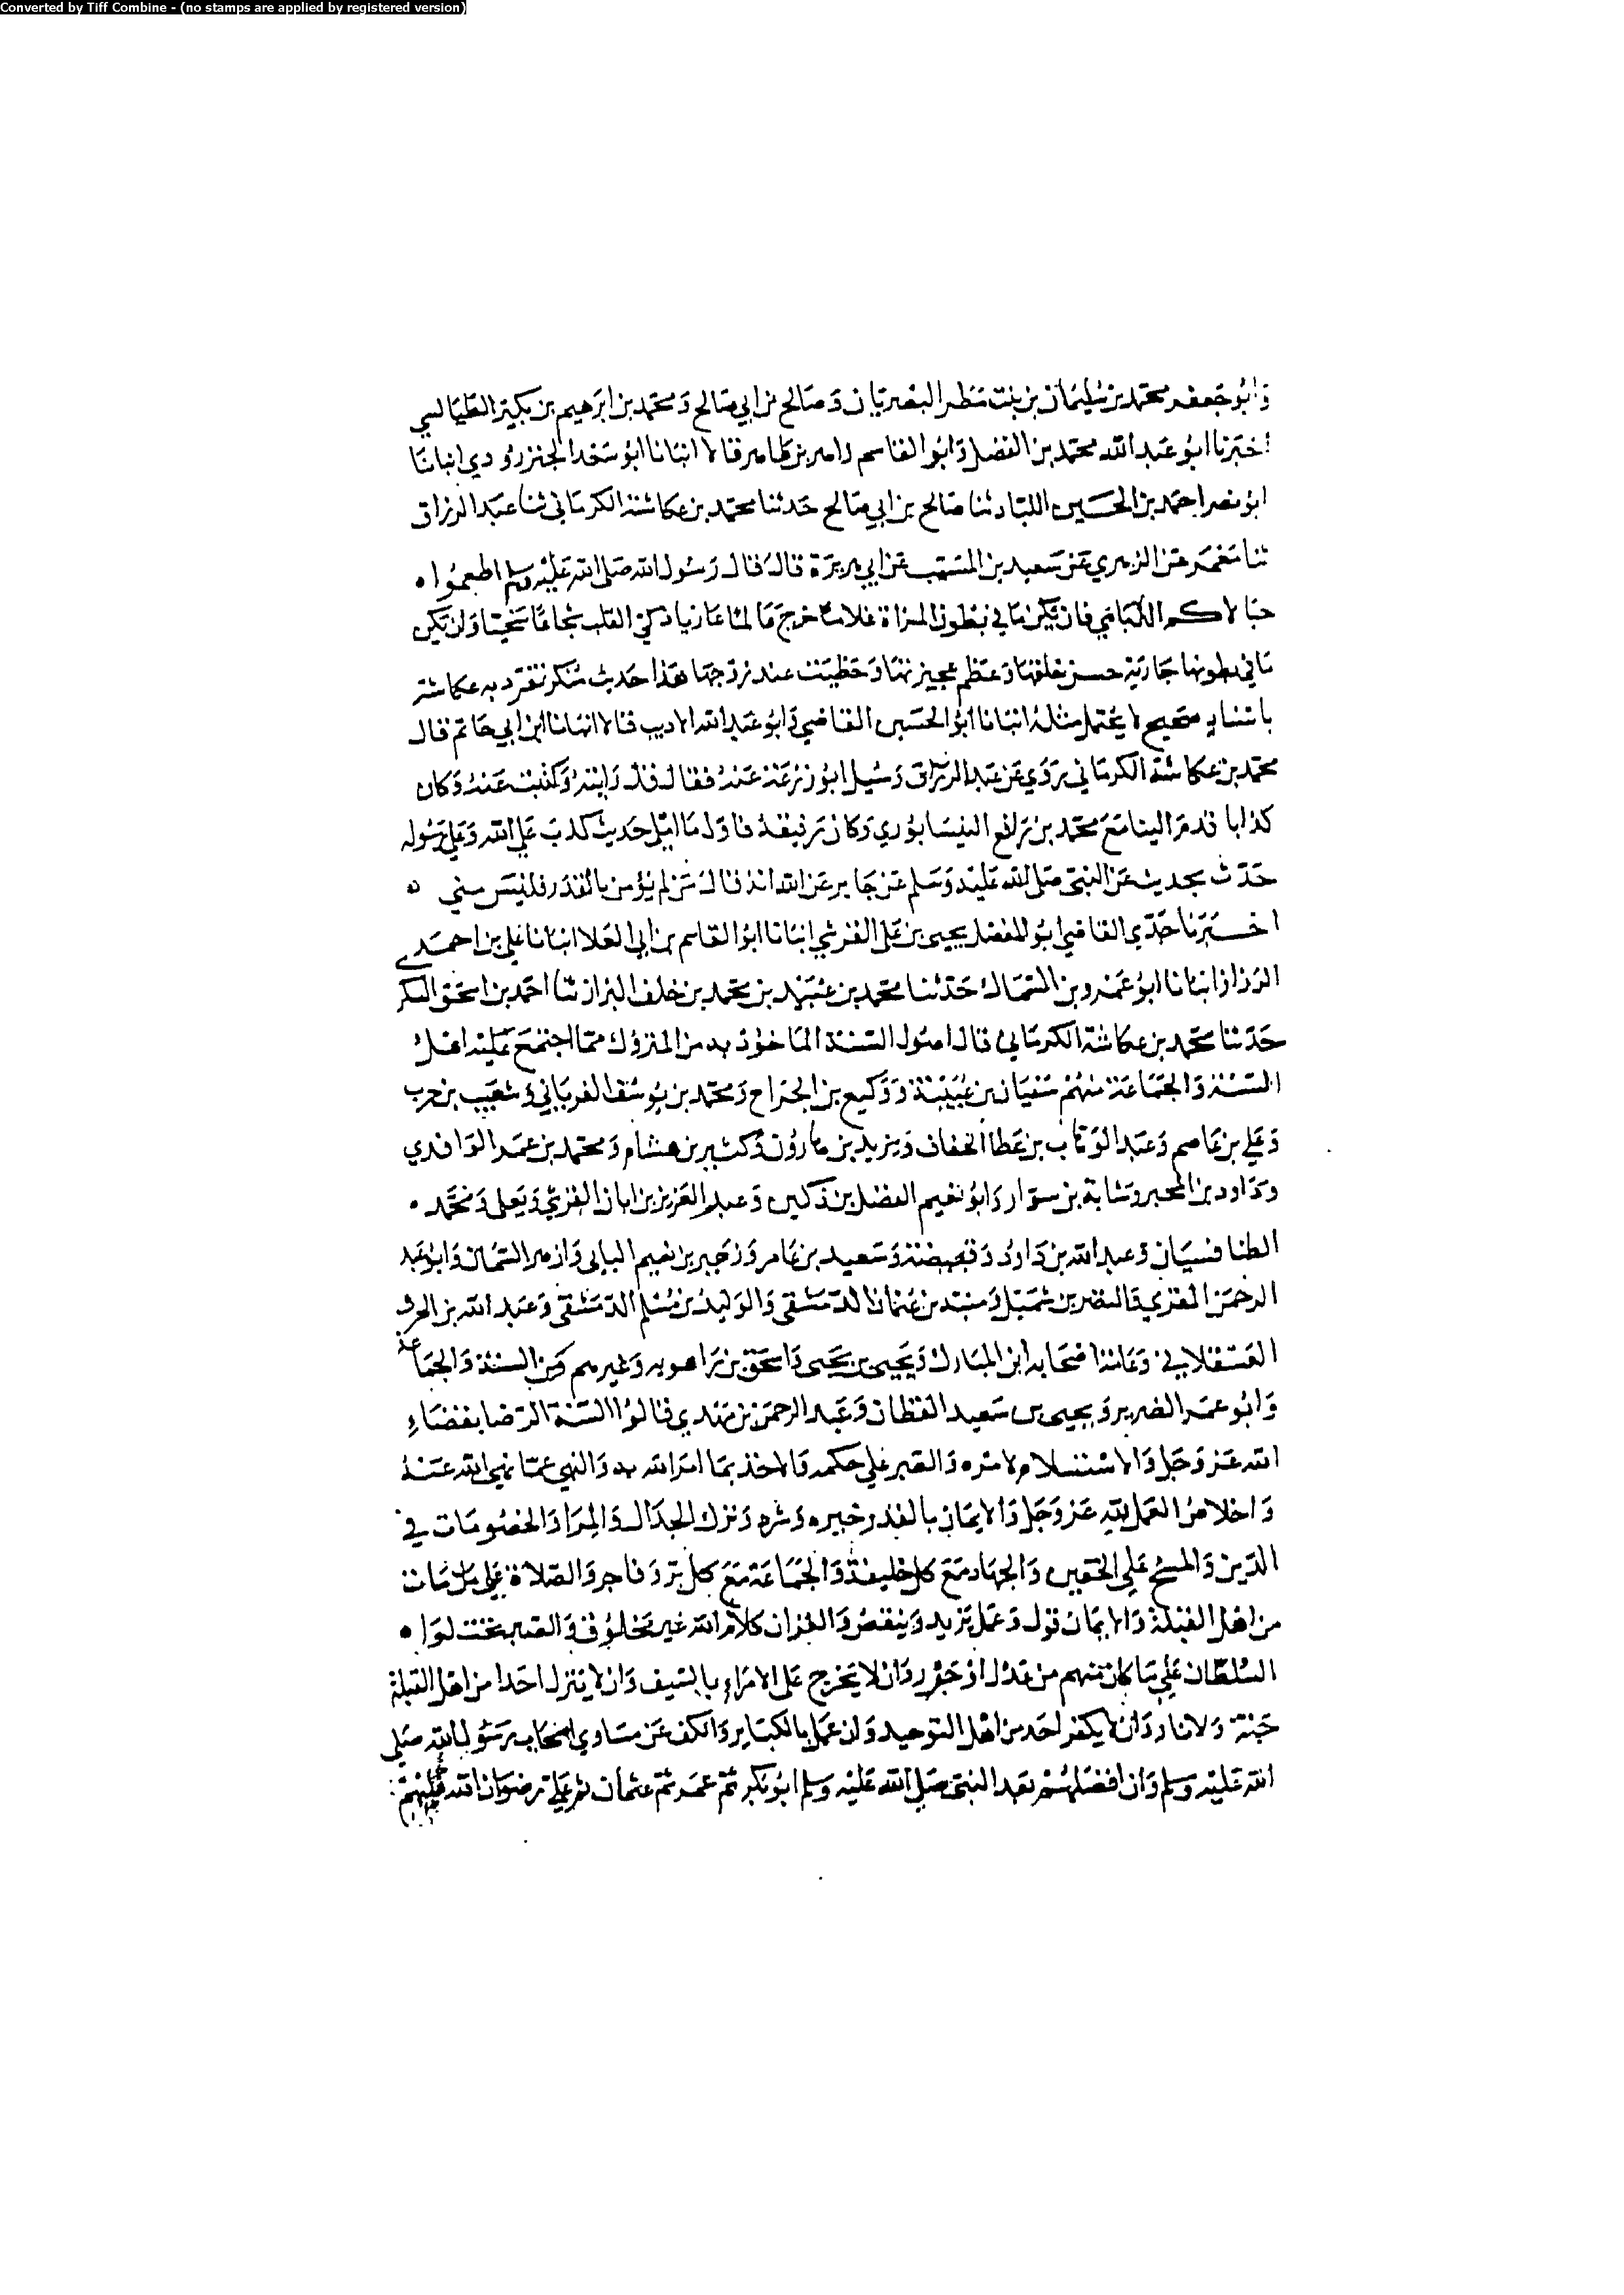 Converted by Tiff Combine - (no stamps are applied by registered version)
وَابُو جَعفر محمّد بن سُليمَان بن بنت مَطر البصريَان وَصَالح بن ابي صَالح وَمحمّد بن ابرَهيم بن بكير الطيَالسي
اخبَرنا ابُو عَبد الله محمّد بن الفضل وَابو القاسم زاهر بن طاهر قالا انبَانا ابوُ سَعد الجنزرُودي انبانَا
ابوُ نصر احمَد بن الحسَين اللبّاد ثنا صَالح بن ابي صَالح حَدثنا محمّد بن عكاشة الكرمَاني ثنا عَبد الرزاق
ثنا مَعْمَر عَن الزهري عَن سَعيد بن المسَيب عَن ابي هريرَة قالَ قال رَسُول الله صَلى الله عَليْه وسلم اطعمُوا
حبَالاكم اللبَان فان يَكن مَا في بَطن المرَاة غلامًا خرجَ عَالمًا غازيا ذكيّ القلب شجاعًا سَخيّا وَان يَكن
مَا في بطونها جَاريَة حسن خلقهَا وَعظم عجيزتهَا وَحَظيَت عند زوجهَا هَذا حَديث مُنكر تفرّد به عكاشة
باسْنادٍ صَحيح لا يحتمل مثلهُ انبَانا ابُو الحسَين القاضي وَابو عَبد الله الاديب قالا انبانا ابن ابي حَاتم قال
محمّد بن عكاشة الكرمَاني يروَي عَن عَبد الرزاق وَسُئل ابوُ زرعَة عَنهُ فقال قد رَايتهُ وَكتبت عَنهُ وَكان
كذابا قدمَ الينا مَعَ محمّد بن رَافع النيسَابوُري وَكان رَفيقهُ فاوّل مَا املى حَديث كذبَ عَلى الله وَعَلى رَسُوله
حَدّث بحديث عَن النبيّ صَلى الله عَليْه وَسَلم عَن جَابر عَن الله انه قالَ مَن لم يؤمن بالقدَر فليَس مني
اخبَرَنا جَدّي القاضي ابوُ المفضل يحيى بن عَلي القرشي انبَانا ابوُ القاسم بن ابي العَلا انبَانا عَلي بن احمَد
الرَزاز انبَانا ابوُ عَمْرو بن السَّمَاك حَدّثنا محمّد بن عبَيد بن محمّد بن خلف البزاز ثنا احمَد بن اسحَق السكري
حَدّثنا محمّد بن عكاشة الكرمَاني قال اصُول السّنة المَاخوُذ به من المتروُك ممّا اجتمَع عَليْه اهْل
السّنة وَالجمَاعَة منهُم سُفيَان بن عُيَيْنَة وَوَكيع بن الجرَاح وَمحمّد بن يُوسُف الفريَاني وَشعَيب بن حرب
وَعَلي بن عَاصم وَعَبد الوَهاب بن عَطا الخفاف وَيزيد بن هارُون وَكثير بن هشام وَمحمّد بن عمَر الوَاقدي
وَدَاود بن المحبر وشابة بن سوّار وَابوُ نعَيم الفضل بن دَكين وَعبد العَزيز بن ابان القرَشي وَيَعلى وَمحمّد
الطنافسيَان وَعبد الله بن دَاوُد وَقبيصَة وَسَعيد بن عَامر وَزهَير بن نعَيم البابي وَازهر السّمّان وَابوُ عَبد
الرحمَن المقري وَالنضر بن شميَل وَمنَبّه بن عثمان الدّمَشقي وَالوَليد بن مُسْلم الدّمَشقي وَعَبد الله بن الحرث
العَسْقلاني وَعَامّة اصْحَابه ابن المبَارك وَيحيى بن يحَيى وَاسحَق بن رَاهويه وَغيرهم مَن السنة وَالجمَاعة
وَابوُ عمَر الضرير وَيحيى بن سَعيد القطان وَعَبد الرحمَن بن مَهدي قالوُا السّنة الرّضا بقضَاءِ
الله عَز وَجَل وَالاسْتسلام لامْره وَالصّبر عَلى حكمه وَالاخذ بمَا امَر الله به وَالنهي عَمّا نهي الله عَنهُ
وَاخلاصُ العَمل للهِ عَز وَجَل وَالايمَان بالقدَر خيره وَشره وَترك الجدَال وَالمِرَا وَالخصُومَات في
الدّين وَالمسْح عَلى الخفين وَالجهَاد مَعَ كل خليفة وَالجمَاعَة مَعَ كل برّ وَفاجر وَالصّلاة عَلى من مَات
من اهْل القبلة وَالايمَان قول وَعَمل يزيد وَينقصُ وَالقرَان كلاَم الله غير مَخلوُق وَالصّبر تحت لوَا
السُّلطان عَلى مَا كان منهم من عَدْل اوْ جَوْر وَان لا يَخرج عَلى الامَرَاء بالسّيف وَان لا ينزل احَدا من اهْل القبلة
جَنة وَلا نارا وَان لا يكفر احَد من اهْل التوحيد وَان عَمل بالكبَاير وَالكف عَن مسَاوي اصْحاب رسُول الله صَلى
الله عَليْه وسَلم وَان افضَلهُمْ بَعد النبيّ صَلى الله عَليْه وسلم ابوُ بَكر ثمّ عمَر ثمّ عثمان ثم عَليّ رضوَان الله عَليْهمْ